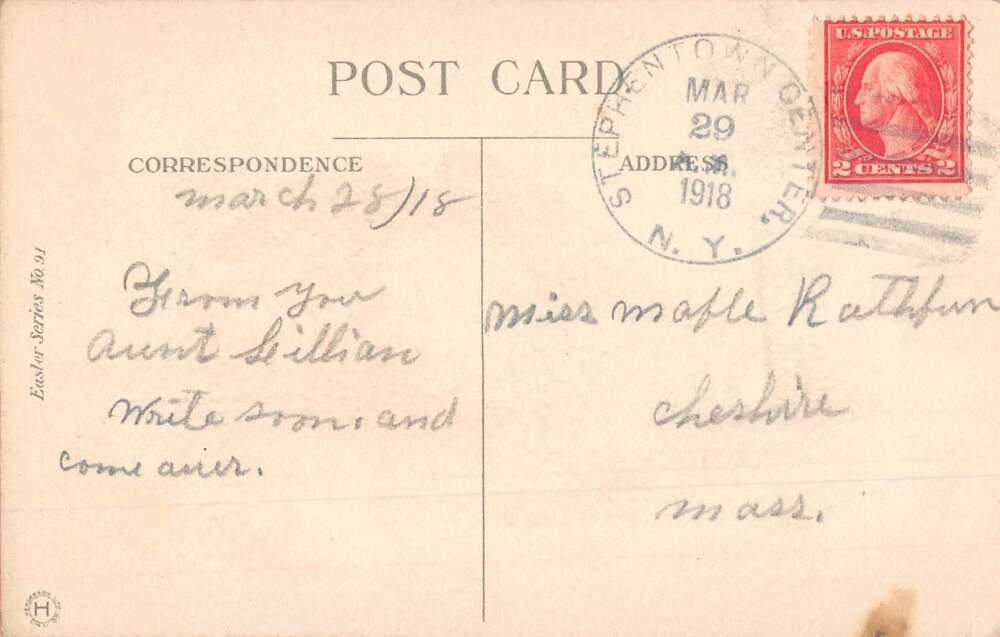 POST CARD
STEPHENTOWN CENTER,
N. Y.
MAR
29
1918
U.S. POSTAGE
2 CENTS 2
CORRESPONDENCE
ADDRESS
march 28/18
From you
Aunt Lillian
Write soon. and
come over.
Miss Maple Rathbun
Cheshire
Mass.
Easter Series No. 91
H